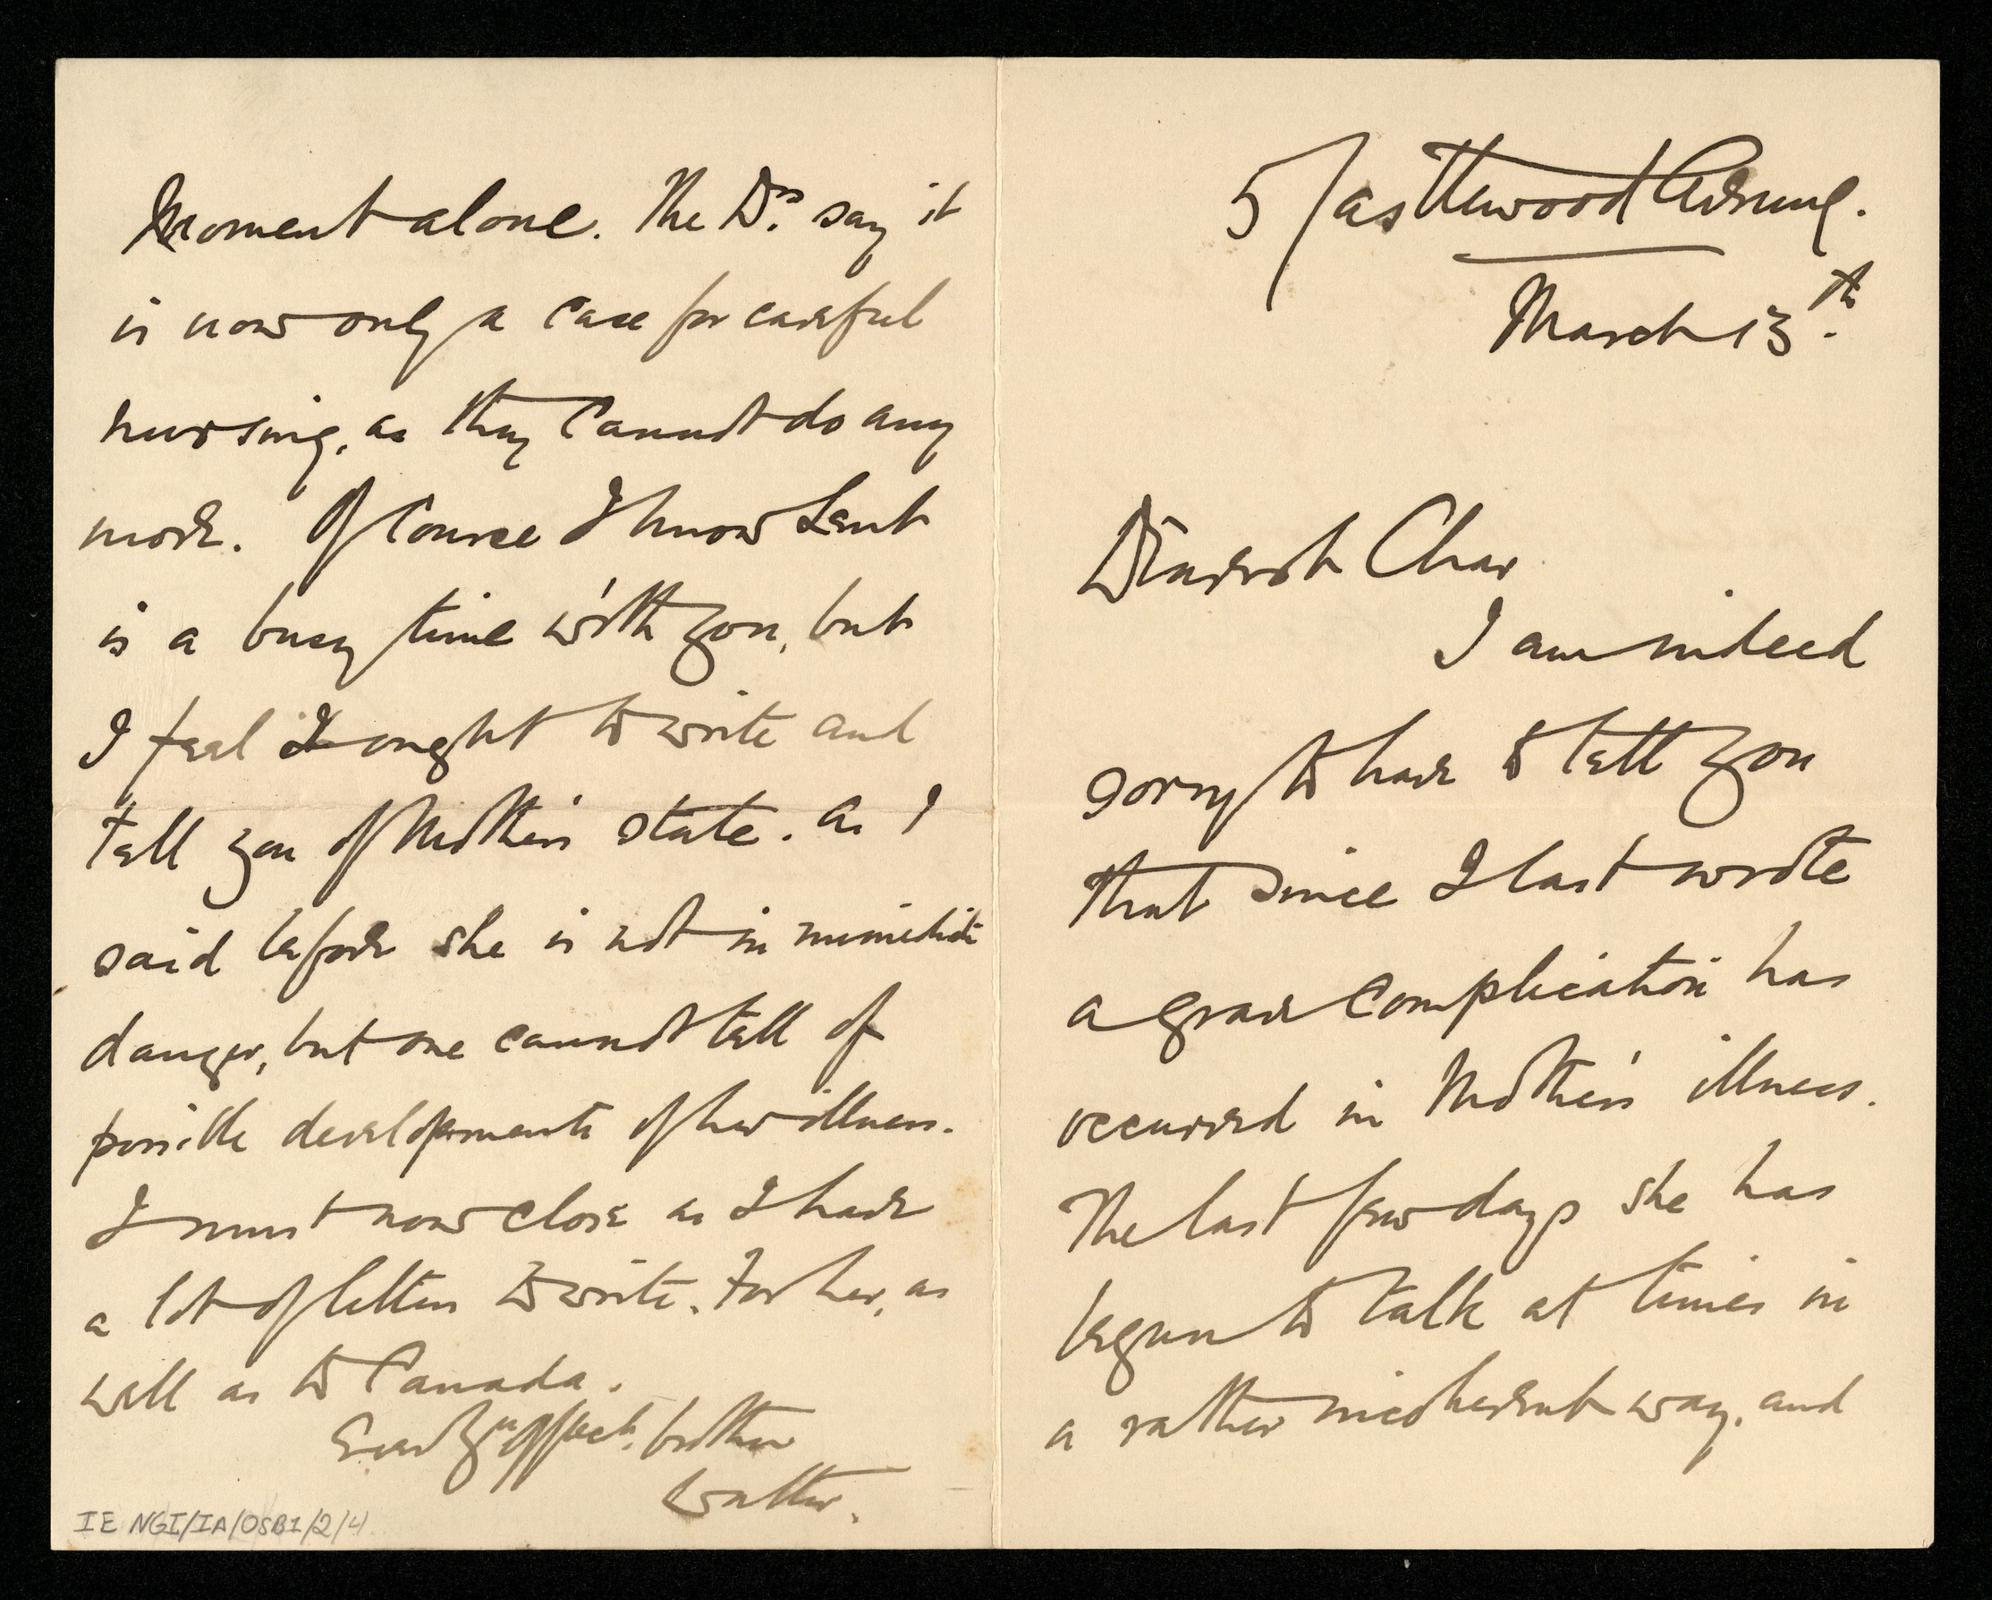 5 Castlewood Avenue.
March 13th.
Dearest Char
I am indeed
sorry to have to tell you
that since I last wrote
a grave complication has
occurred in Mother's illness.
The last few days she has
begun to talk at times in
a rather incoherent way, and
Moment alone. The Drs. say it
is now only a case for careful
nursing, as they cannot do any
more. Of course I know Lent
is a busy time with you, but
I feel I ought to write and
tell you of Mothers state. As I
said before she is not in immediate
danger, but one cannot tell of
possible developments of her illness.
I must now close as I have
a lot of letters to write. For her, as
well as to Canada.
Ever yr affect. brother
Walter.
IE NGI/IA/OSB1/2/4